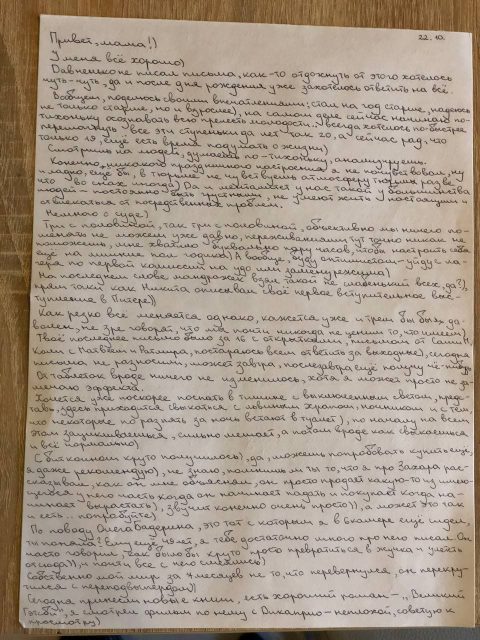 22.10.
Привет, мама!)
У меня всё хорошо)
Давненько не писал письма, как-то отдохнуть от этого хотелось
чуть-чуть, да и после дня рождения уже захотелось ответить на всё.
Вообщем, поделюсь своими впечатлениями: стал на год старше, надеюсь
не только старше, но и взрослее), на самом деле сейчас начинаю по-
тихоньку осознавать всю прелесть молодости. Всегда хотелось по-быстрее
перешагнуть все эти ступеньки до лет так 20, а сейчас рад, что
только 19, ещё есть время подумать о жизни)
Смотришь на людей, думаешь по-тихоньку, анализируешь.
Конечно, никакого праздничного настроения я не почувствовал, ну
и ладно, ещё бы, в тюрьме не чувствуешь атмосферу тюрьмы, разве
что во снах иногда) Да и менталитет у нас такой у большинства
людей - постоянно быть грустными, не умеют жить настоящим и
отвлекаться от посредственных проблем.
Немного о суде)
Три с половиной, так три с половиной, объективно мы ничего по-
менять не можем уже давно, переживаниями тут точно никак не
поможешь, мне хватило буквально пару часов, чтобы настроить себя
ещё на лишние пол годика) А вообще, буду оптимистом - уйду с ла-
геря по первой комиссии на удо или замену режима)
На последнем слове мандраж взял такой не слабенький всех, да?),
прям такой как Никита описывал своё первое вступительное выс-
тупление в Питере))
Как резко всё меняется однако, кажется уже и трем бы был до-
волен, не зря говорят, что мы почти никогда не ценим то, что имеем)
Твоё последнее письмо было за 16 с открытками, письмом от Саши М,
Коли с Матвеем и Ратмира, постараюсь всем ответить за выходные), сегодня
письма не разносили, может завтра, послезавтра ещё получу чё-нибудь
От таблеток вроде ничего не изменилось, хотя я может просто не за-
мечаю эффекта.
Хочется уже поскорее поспать в тишине с выключенным светом, пред-
ставь, здесь приходится свыкаться с львиным храпом, ночником и с тем,
что некоторые по раз пять за ночь встают в туалет), по началу на всём
этом зацикливаешься, сильно мешает, а потом вроде как свыкаешься
и всё нормально)
С биткоином круто получилось), да, можешь попробовать купить ещё,
я даже рекомендую), не знаю, помнишь ли ты то, что я про Захара рас-
сказывал, как он мне объяснял, он просто продаёт какую-то из имею-
щегося у него часть когда он начинает падать и покупает когда на-
чинает вырастать), звучит конечно очень просто)), а может это так
и есть.. попробуйте)
По поводу Олега Бадерина, это тот с которым я в 6 камере ещё сидел,
ты поняла? Ему ещё 49 лет, я тебе достаточно много про него писал. Он
часто говорил, как было бы круто просто превратиться в жучка и улететь
отсюда)), и почти все с него смеялись)
Собственно мой мир за 4 месяцев не то, что перевернулся, он перекру-
тился с переподвывертом))
Сегодня принесли новые книги, есть хороший роман - „Великий
Гэтсби“, я смотрел фильм по нему с Дикаприо - неплохой, советую к
просмотру)